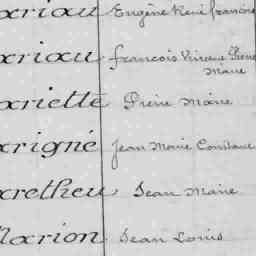 oriau Eugène René françois
oriau françois Vincent Pierre
Marie
oriette Pierre Marie
origné Jean Marie Constant
oretheu Jean Marie
Morion Jean Louis